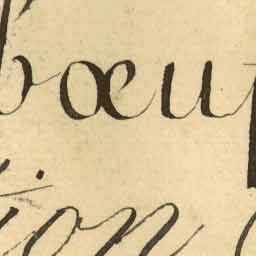 bœuf
tion